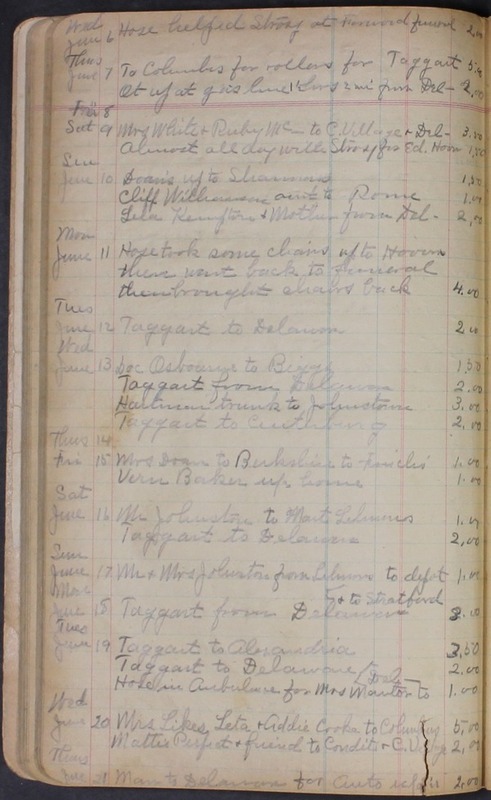 Wed
June 6 Hose helped Strosy at funeral 2.00
Thurs
June 7 To Columbus for rollers for Taggart 5.00
at gas line 2 mi from Del- 2.00
Fri 8
Sat 9 Mrs White + Ruby Mc to C. Village + Del- 3.00
Almost all day with Strosy for Ed. Hoover 1.50
Sun
June 10 up to 1.50
Cliff out to Rome 1.00
Leta Rempton & Mother from Del- 2.00
Mon
June 11 Hose took some chairs up to Hoovers
then went back to funeral
then brought chairs back 4.00
Tues
June 12 Taggart to Delaware 2.00
Wed
June 13 Doc Osbourne to Biggs 1.50
Taggart from Delaware 2.00
Hartman trunk to Johnstown 3.00
Taggart to Centerburg 2.00
Thurs 14
Fri 15 Mrs Doan to Berkshire to 1.00
Vern Baker up home 1.00
Sat
June 16 Mr Johnston to Mart Lehmons 1.00
Taggart to Delaware 2.00
Sun
June 17 Mr + Mrs Johnston from to depot 1.00
Mon + to Stratford
June 18 Taggart from Delaware 3.00
Tues
June 19 Taggart to Alexandria 3.50
Taggart to Delaware 2.00
Hose in Ambulance for Mrs Manter to Del- 1.00
Wed
June 20 Mrs Likes, Leta + Addie Cooke to Columbus 5.00
Mattie Perfect + friend to Condit + C. Village 2.00
Thurs
June 21 Man to Delaware for Auto 2.00